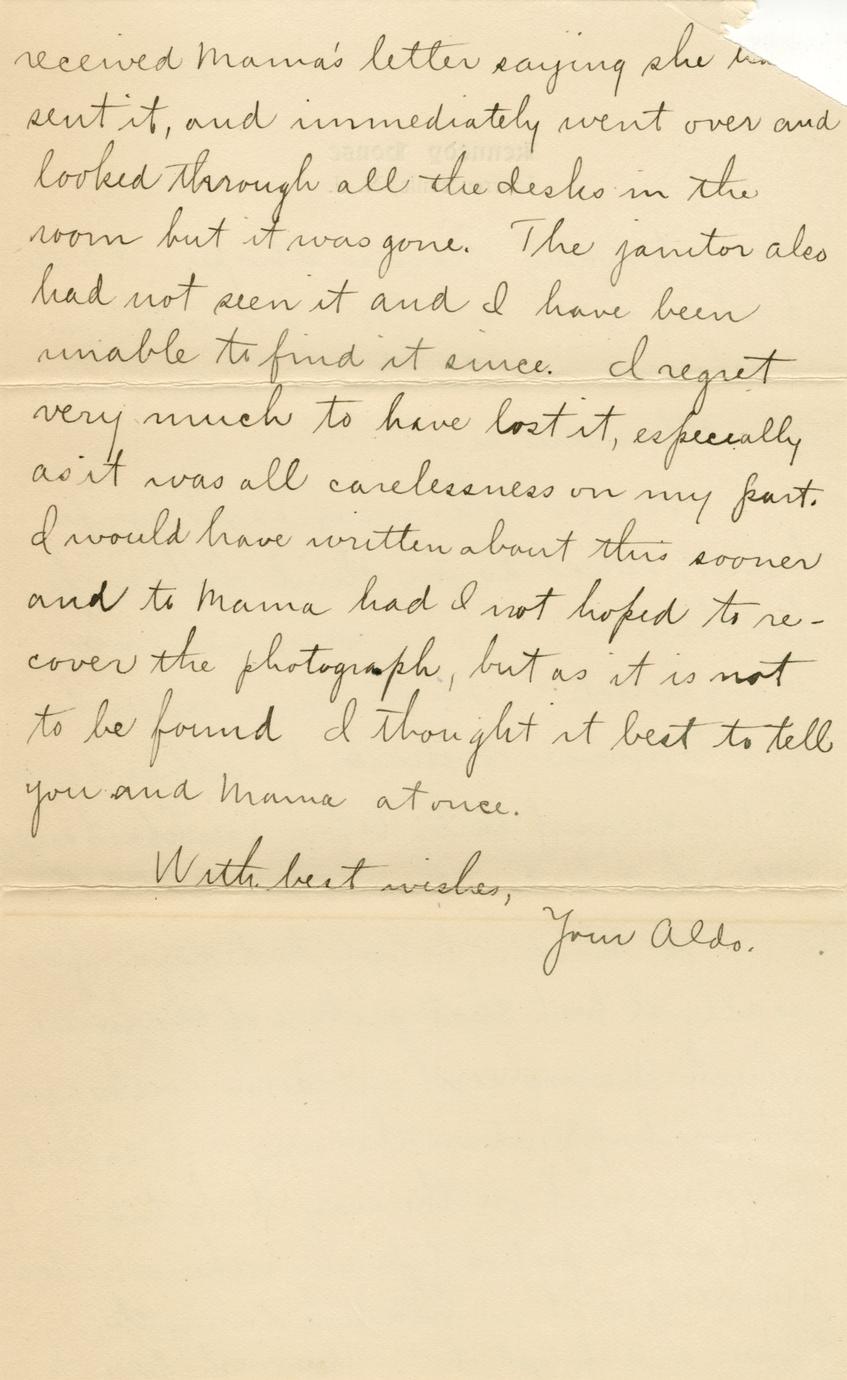 received Mama's letter saying she
sent it, and immediately went over and
looked through all the desks in the
room but it was gone. The janitor also
had not seen it and I have been
unable to find it since. I regret
very much to have lost it, especially
as it was all carelessness on my part.
I would have written about this sooner
and to Mama had I not hoped to re-
cover the photograph, but as it is not
to be found I thought it best to tell
you and Mama at once.
With best wishes,
Your Aldo.